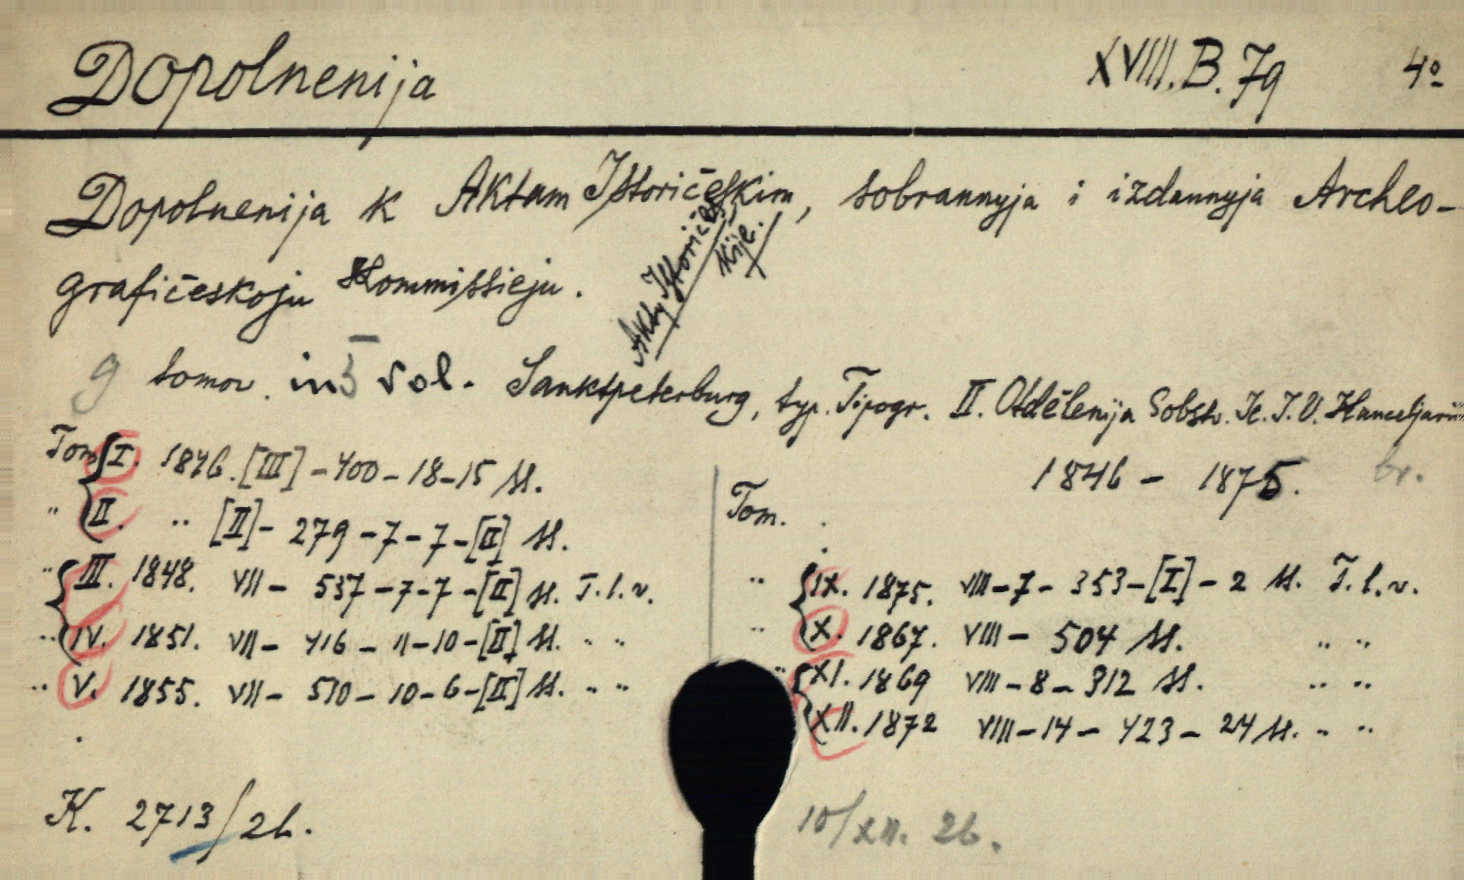 Dopolnenija XVIII.B.79 4º
Dopolnenija k Aktam Istoričeskim, sobrannyja i izdannyja Archeo-
grafičeskoju Kommissieju.
Akty Istoričes-
kije.
9 tomov. in 5 vol. Sanktpeterburg, typ. Tipogr. II. Otdělenija Sobstv. Je. I. V. Kanceljarii
1846 - 1875. br.
Tom I. 1846. [III] - 400 - 18 - 15 SS.
" II. " [II] - 279 - 7 - 7 - [II] SS.
" III. 1848. VII - 537 - 7 - 7 - [II] SS. T. l. v.
" IV. 1851. VII - 416 - 11 - 10 - [II] SS. " "
" V. 1855. VII - 510 - 10 - 6 - [II] SS. " "
Tom.
" IX. 1875. VIII - 7 - 353 - [I] - 2 SS. T. l. v.
" X. 1867. VIII - 504 SS. " "
" XI. 1869 VIII - 8 - 312 SS. " "
XII. 1872 VIII - 14 - 423 - 24 SS. " "
K. 2713/26.
10/XII. 26.